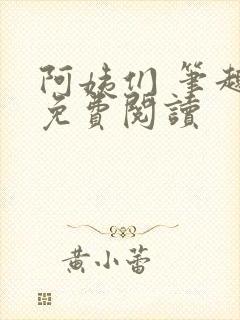 阿姨们 筆趣
免費閱讀
黄小蕾